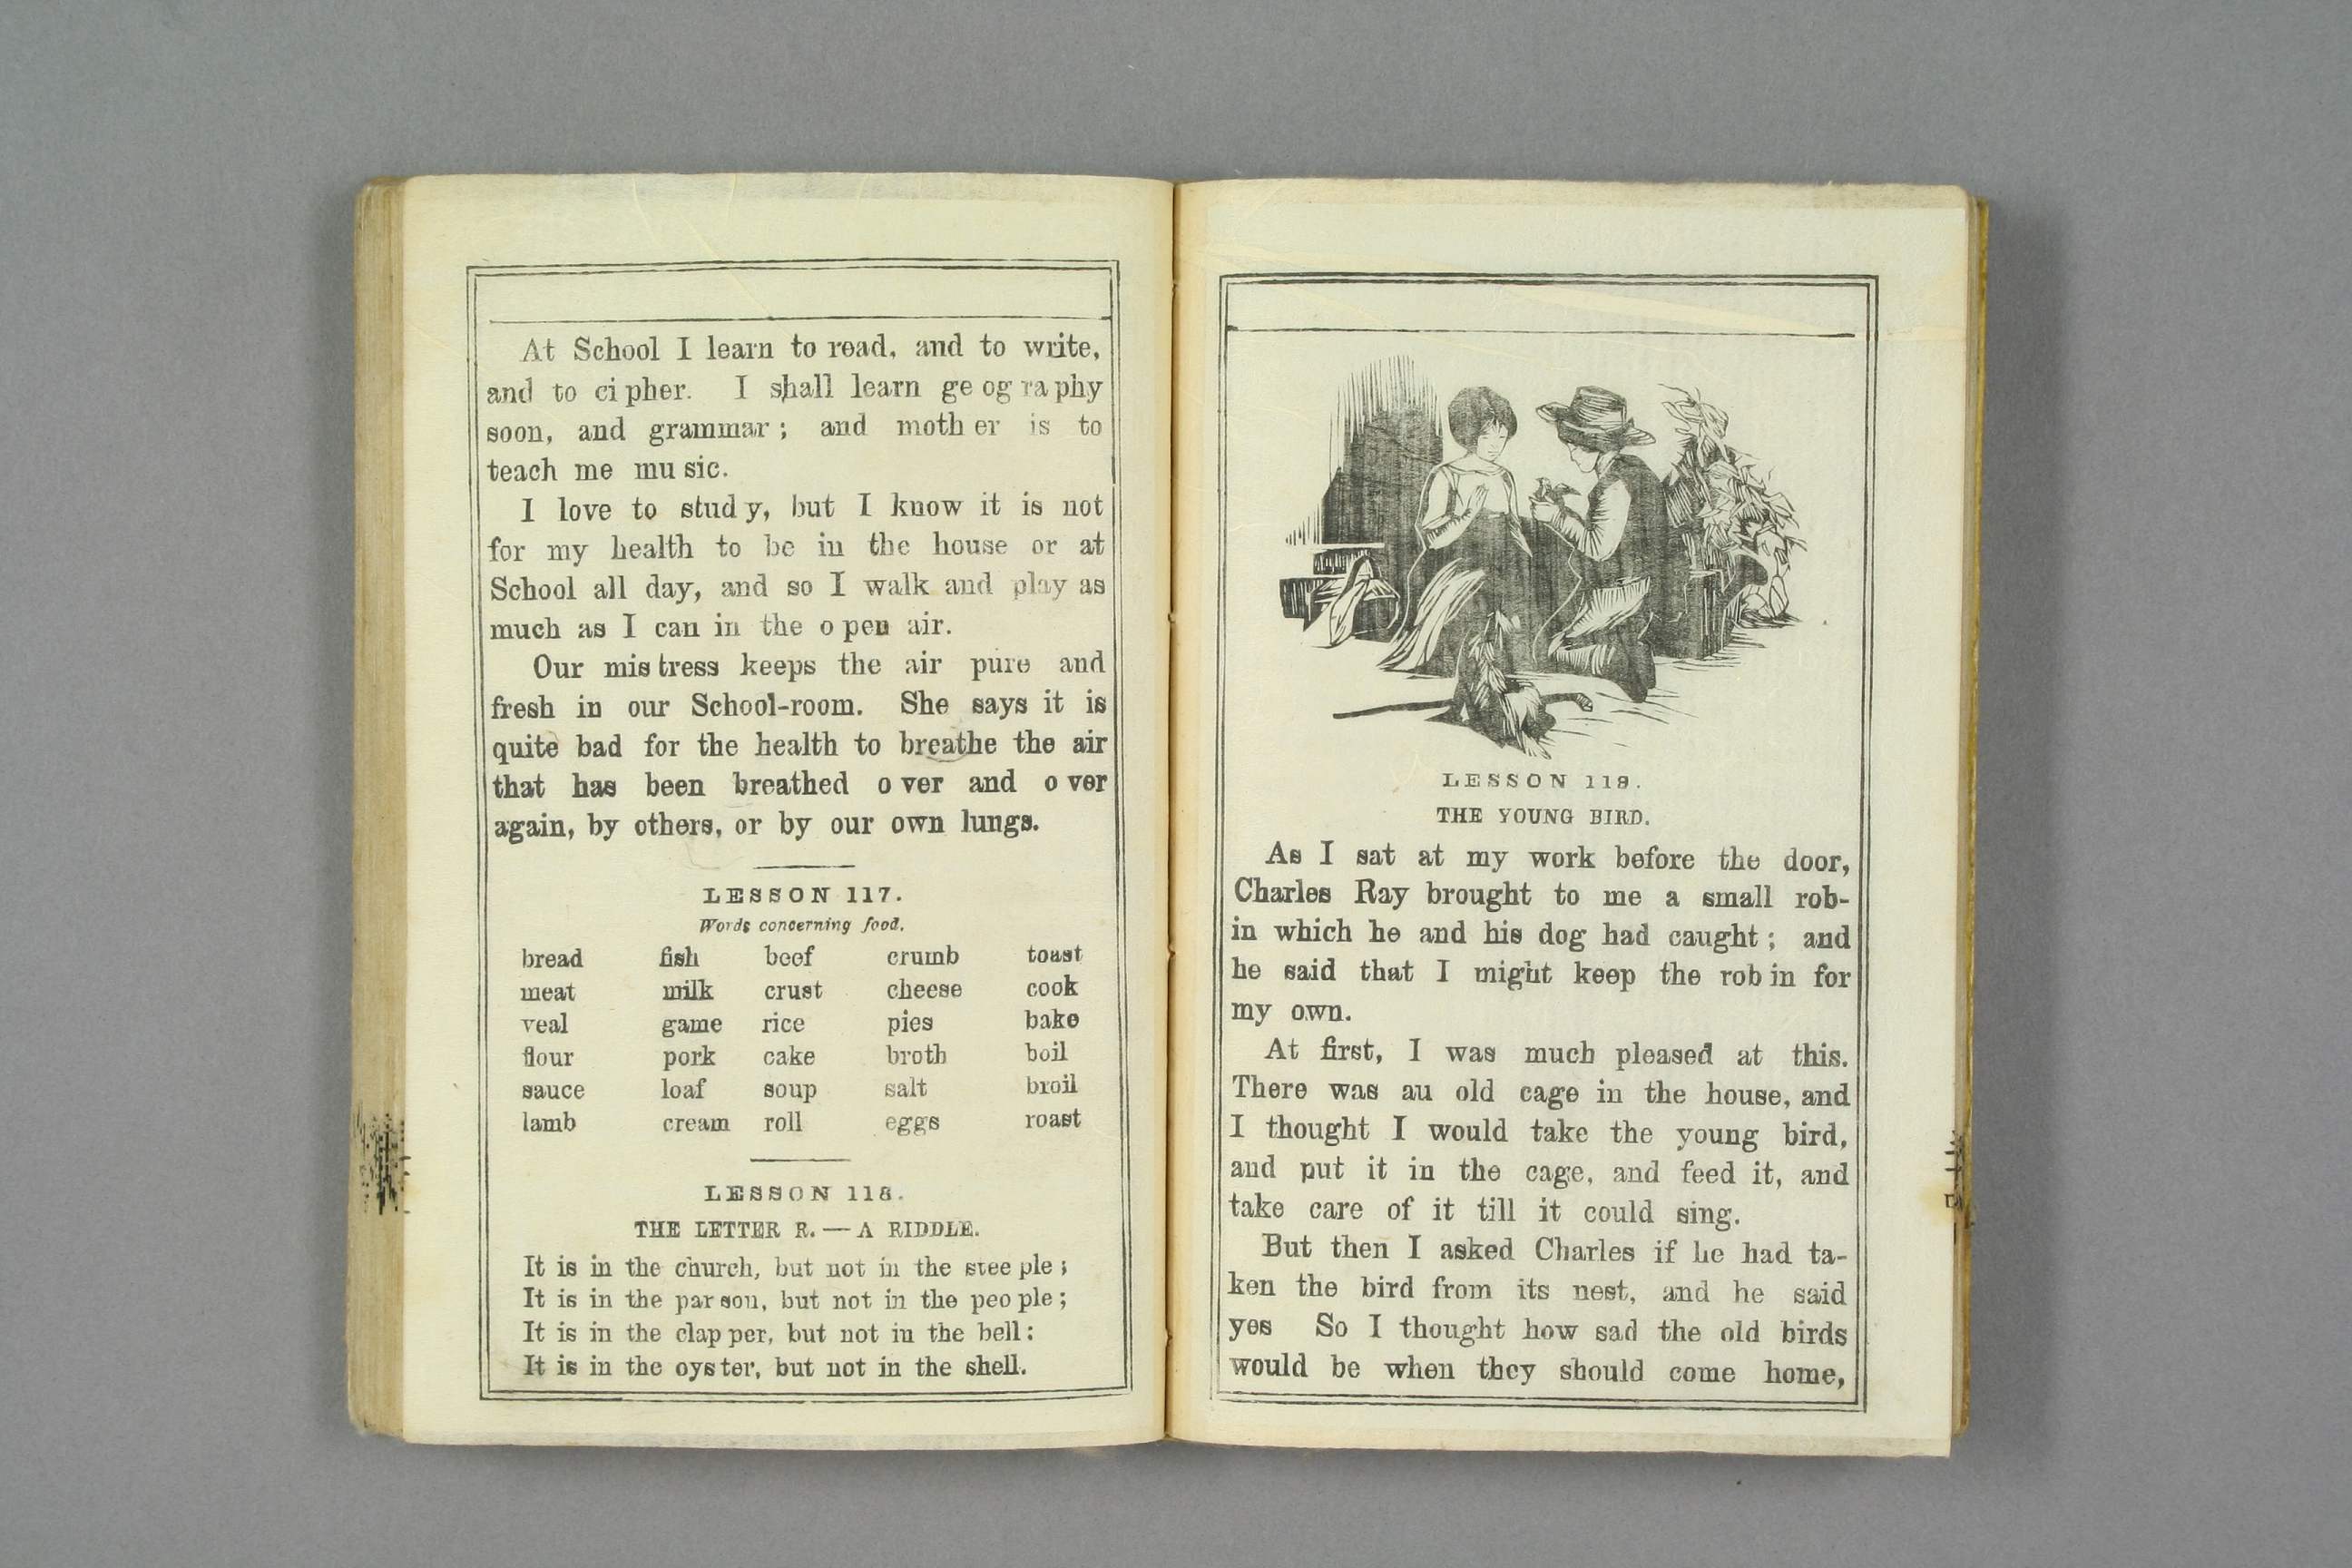 At School I learn to read, and to write,
and to ci pher. I shall learn ge og ra phy
soon, and grammar; and moth er is to
teach me mu sic.
I love to stud y, but I know it is not
for my health to be in the house or at
School all day, and so I walk and play as
much as I can in the o pen air.
Our mis tress keeps the air pure and
fresh in our School-room. She says it is
quite bad for the health to breathe the air
that has been breathed o ver and o ver
again, by others, or by our own lungs.
LESSON 117.
Words concerning food.
bread fish beef crumb toast
meat milk crust cheese cook
veal game rice pies bake
flour pork cake broth boil
sauce loaf soup salt broil
lamb cream roll eggs roast
LESSON 118.
THE LETTER R.—A RIDDLE.
It is in the church, but not in the stee ple;
It is in the par son, but not in the peo ple;
It is in the clap per, but not in the bell:
It is in the oys ter, but not in the shell.
LESSON 119.
THE YOUNG BIRD.
As I sat at my work before the door,
Charles Ray brought to me a small rob-
in which he and his dog had caught; and
he said that I might keep the rob in for
my own.
At first, I was much pleased at this.
There was au old cage in the house, and
I thought I would take the young bird,
and put it in the cage, and feed it, and
take care of it till it could sing.
But then I asked Charles if he had ta-
ken the bird from its nest, and he said
yes So I thought how sad the old birds
would be when they should come home,